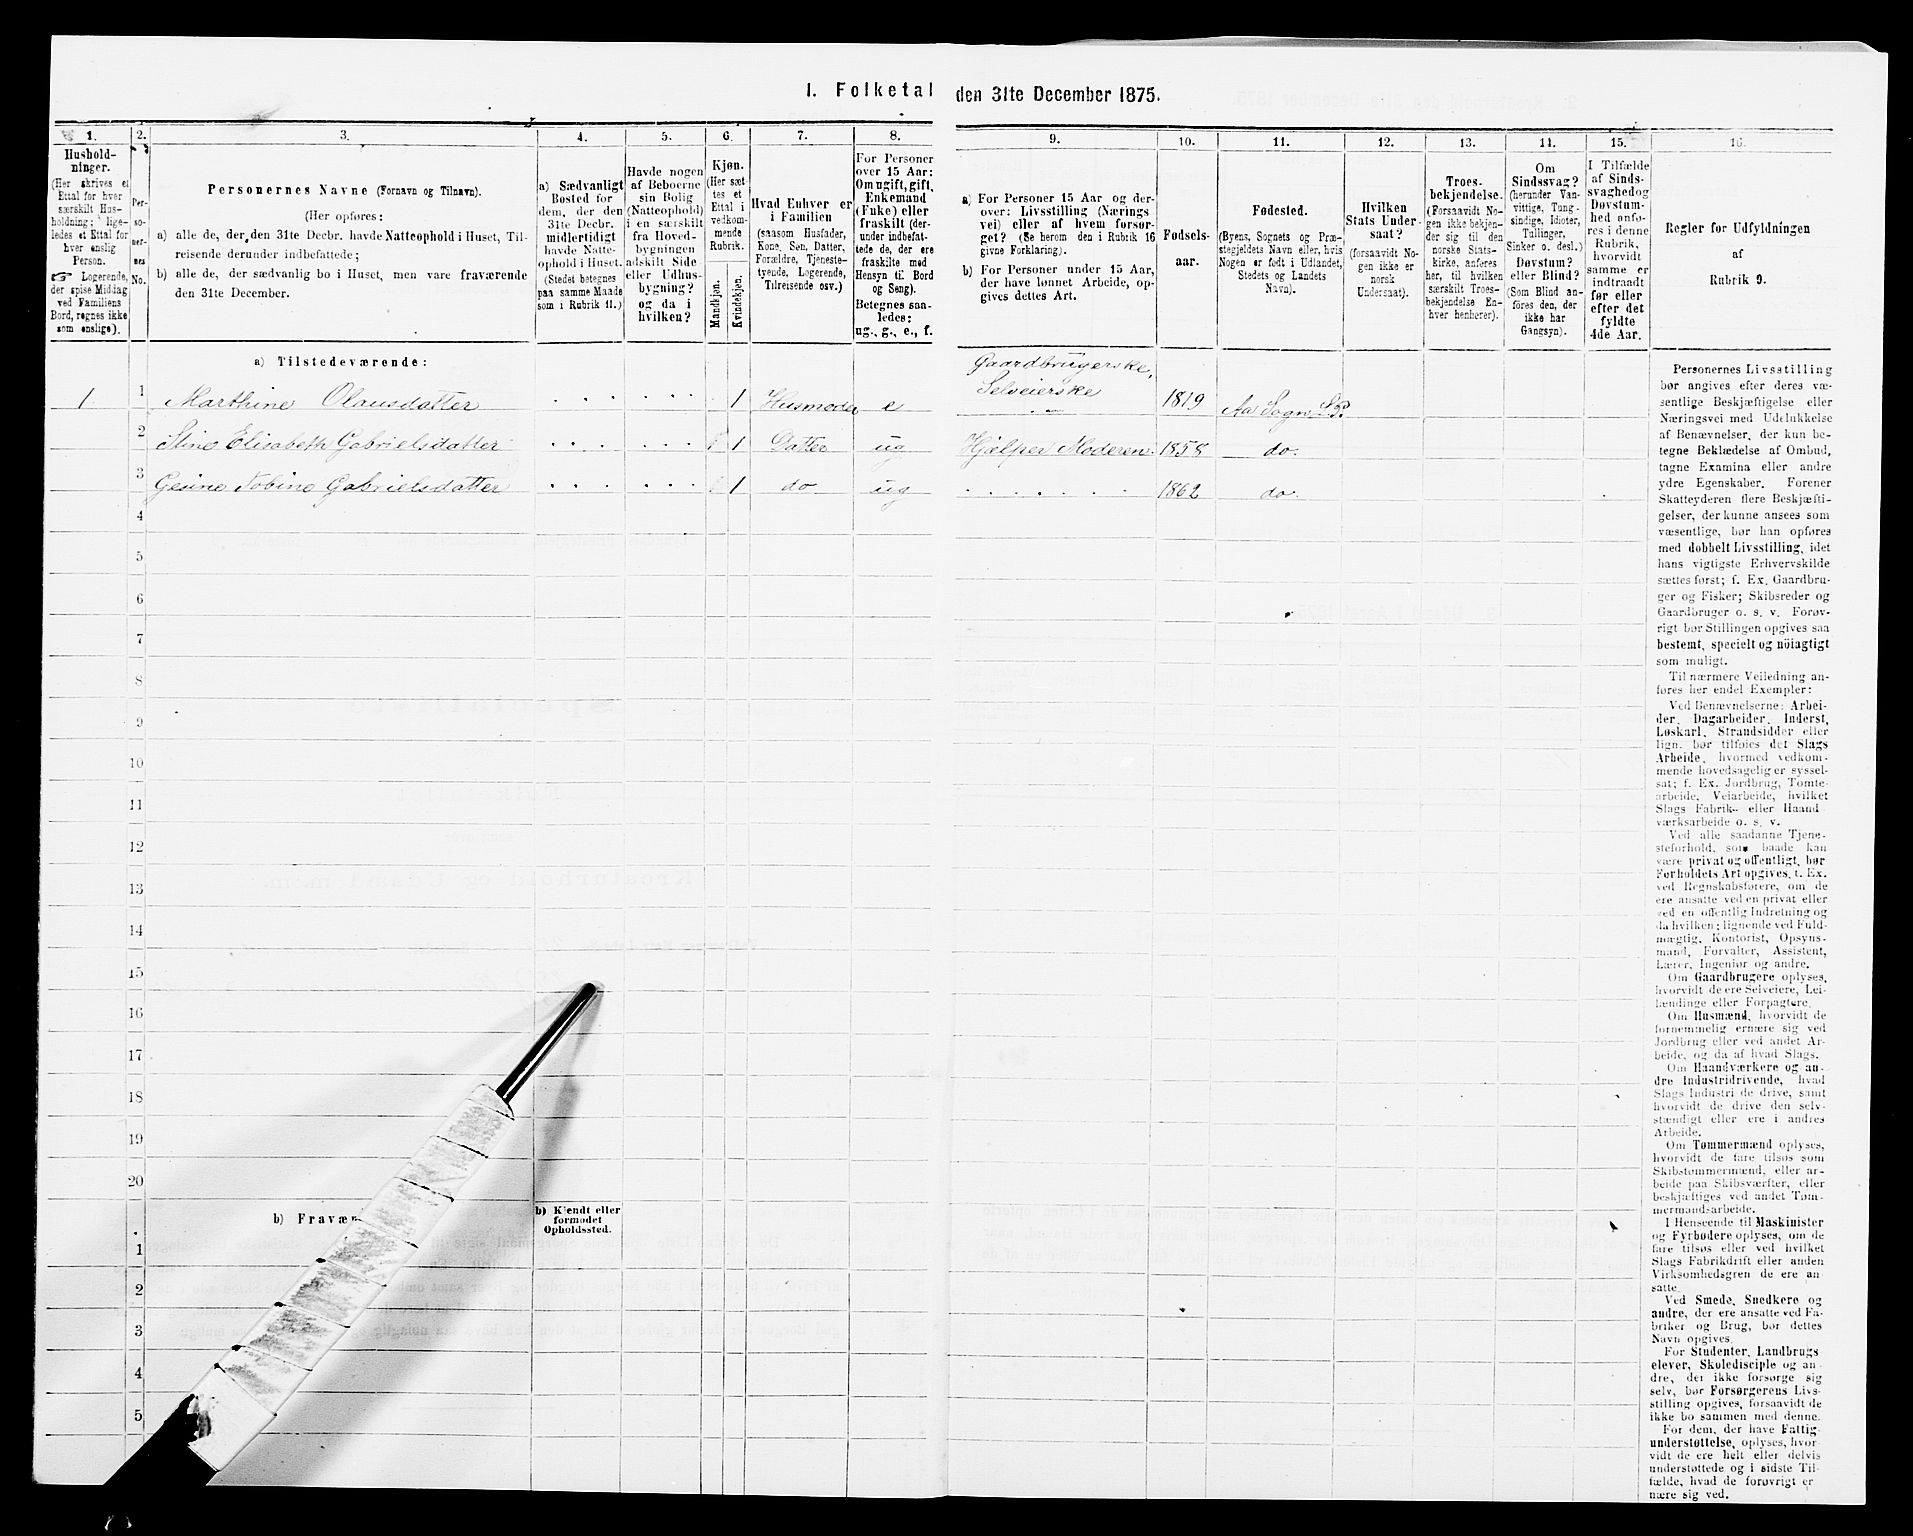 1. Folketal den 31te December 1875.
1. 2. 3. 4. 5. 6. 7. 8. 9. 10. 11. 12. 13. 14. 15. 16.
Hushold-
ninger.
(Her skrives et
Ettal for hver
særskilt Hus-
holdning; lige-
ledes et Ettal for
hver enslig
Person.
☞ Logerende,
der spise Middag
ved Familiens
Bord, regnes ikke
som enslige).
Per-
so-
ner-
nes
No.
Personernes Navne (Fornavn og Tilnavn).
(Her opføres:
a) alle de, der den 31te Decbr. havde Natteophold i Huset, Til-
reisende derunder indbefattede;
b) alle de, der sædvanlig bo i Huset, men vare fraværende
den 31te December.
a) Sædvanligt
Bosted for
dem, der den
31te Decbr.
midlertidigt
havde Natte-
ophold i Huset.
(Stedet betegnes
paa samme Maade
som i Rubrik 11.)
Havde nogen
af Beboerne
sin Bolig
(Natteophold)
i en særskilt
fra Hoved-
bygningen
adskilt Side
eller Udhus-
bygning?
og da i
hvilken?
Kjøn.
(Her sæt-
tes et
Ettal i
vedkom-
mende
Rubrik.
Mandkjøn.
Kvindekjøn.
Hvad Enhver er
i Familien
(saasom Husfader,
Kone, Søn, Datter,
Forældre, Tjeneste-
tyende, Logerende,
Tilreisende osv.)
For Personer
over 15 Aar:
Om ugift, gift,
Enkemand
(Enke) eller
fraskilt (der-
under indbefat-
tede de, der ere
fraskilte med
Hensyn til Bord
og Seng).
Betegnes saa-
ledes:
ug., g., e., f.
a) For Personer 15 Aar og der-
over: Livsstilling (Nærings-
vei) eller af hvem forsør-
get? (Se herom den i Rubrik 16
givne Forklaring).
b) For Personer under 15 Aar,
der have lønnet Arbeide, op-
gives dettes Art.
Fødsels-
aar.
Fødested.
(Byens, Sognets og Præ-
stegjeldets Navn eller, hvis
Nogen er født i Udlandet,
Stedets og Landets
Navn).
Hvilken
Stats Under-
saat?
(forsaavidt No-
gen ikke er
norsk
Undersaat).
Troes-
bekjendelse.
(Forsaavidt No-
gen ikke bekjen-
der sig til den
norske Stats-
kirke, anføres
her, til hvilken
særskilt Troes-
bekjendelse En-
hver henhører).
Om
Sindssvag?
(herunder Van-
vittige, Tung-
sindige, Idioter,
Tullinger,
Sinker o. desl.)
Døvstum?
eller Blind?
(Som Blind an-
føres den, der
ikke har
Gangsyn).
I Tilfælde
af Sinds-
svaghed og
Døvstum-
hed anfø-
res i denne
Rubrik,
hvorvidt
samme er
indtraadt
før eller
efter det
fyldte
4de Aar.
Regler for Udfyldningen
af
Rubrik 9.
a) Tilstedeværende:
Gaardbrugerske,
1 1 Marthine Olausdatter 1 Husmoder e Selveierske 1819 Aa Sogn S.P.
2 Stine Elisabeth Gabrielsdatter 1 Datter ug Hjælper Moderen. 1858 do.
3 Gesine Tobine Gabrielsdatter 1 do ug 1862 do.
4
5
6
7
8
9
10
11
12
13
14
15
16
17
18
19
20
b) Fravær
b) Kjendt eller
formodet
Opholdssted.
1
2
3
4
5
Personernes Livsstilling
bør angives efter deres væ-
sentlige Beskjæftigelse eller
Næringsvei med Udelukkelse
af Benævnelser, der kun be-
tegne Beklædelse af Ombud,
tagne Examina eller andre
ydre Egenskaber. Forener
Skatteyderen flere Beskjæfti-
gelser, der kunne ansees som
væsentlige, bør han opføres
med dobbelt Livsstilling, idet
hans vigtigste Erhvervskilde
sættes først; f. Ex. Gaardbru-
ger og Fisker; Skibsreder og
Gaardbruger o. s. v. Forøv-
rigt bør Stillingen opgives saa
bestemt, specielt og nöiagtigt
som muligt.
Til nærmere Veiledning an-
føres her endel Exempler:
Ved Benævnelserne: Arbei-
der, Dagarbeider, Inderst,
Løskarl, Strandsidder eller
lign. bør tilføies det Slags
Arbeide, hvormed vedkom-
mende hovedsagelig er syssel-
sat; f. Ex. Jordbrug, Tomte-
arbeide, Veiarbeide, hvilket
Slags Fabrik- eller Haand-
værksarbeide o. s. v.
Ved alle saadanne Tjene-
steforhold, som baade kan
være privat og offentligt, bør
Forholdets Art opgives, f. Ex.
ved Regnskabsførere, om de
ere ansatte ved en privat eller
ved en offentlig Indretning og
da hvilken; lignende ved Fuld-
mægtig, Kontorist, Opsyns-
mand, Forvalter, Assistent,
Lærer, Ingeniør og andre.
Om Gaardbrugere oplyses,
hvorvidt de ere Selveiere, Lei-
lændinge eller Forpagtere.
Om Husmænd, hvorvidt de
fornemmelig ernære sig ved
Jordbrug eller ved andet Ar-
beide, og da af hvad Slags.
Om Haandværkere og an-
dre Industridrivende, hvad
Slags Industri de drive, samt
hvorvidt de drive den selv-
stændigt eller ere i andres
Arbeide.
Om Tømmermænd oplyses,
hvorvidt de fare tilsøs som
Skibstømmermænd, eller ar-
beide paa Skibsværfter, eller
beskjæftiges ved andet Tøm-
mermandsarbeide.
I Henseende til Maskinister
og Fyrbødere oplyses, om de
fare tilsøs eller ved hvilket
Slags Fabrikdrift eller anden
Virksomhedsgren de ere an-
satte.
Ved Smede, Snedkere og
andre, der ere ansatte ved Fa-
briker og Brug, bør dettes
Navn opgives.
For Studenter, Landbrugs-
elever, Skoledisciple og an-
dre, der ikke forsørge sig
selv, bør Forsørgerens Livs-
stilling opgives, forsaavidt de
ikke bo sammen med denne.
For dem, der have Fattig-
understøttelse, oplyses, hvor-
vidt de ere helt eller delvis
understøttede og i sidste Til-
fælde, hvad de forøvrigt er-
nære sig ved.